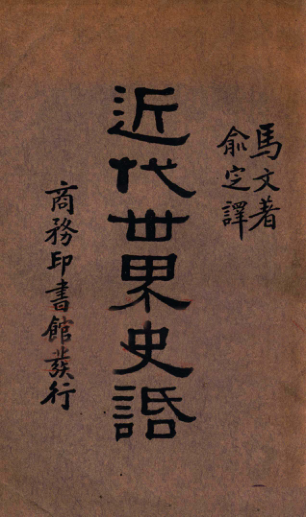 馬文著
俞定譯
近代世界史話
商務印書館發行